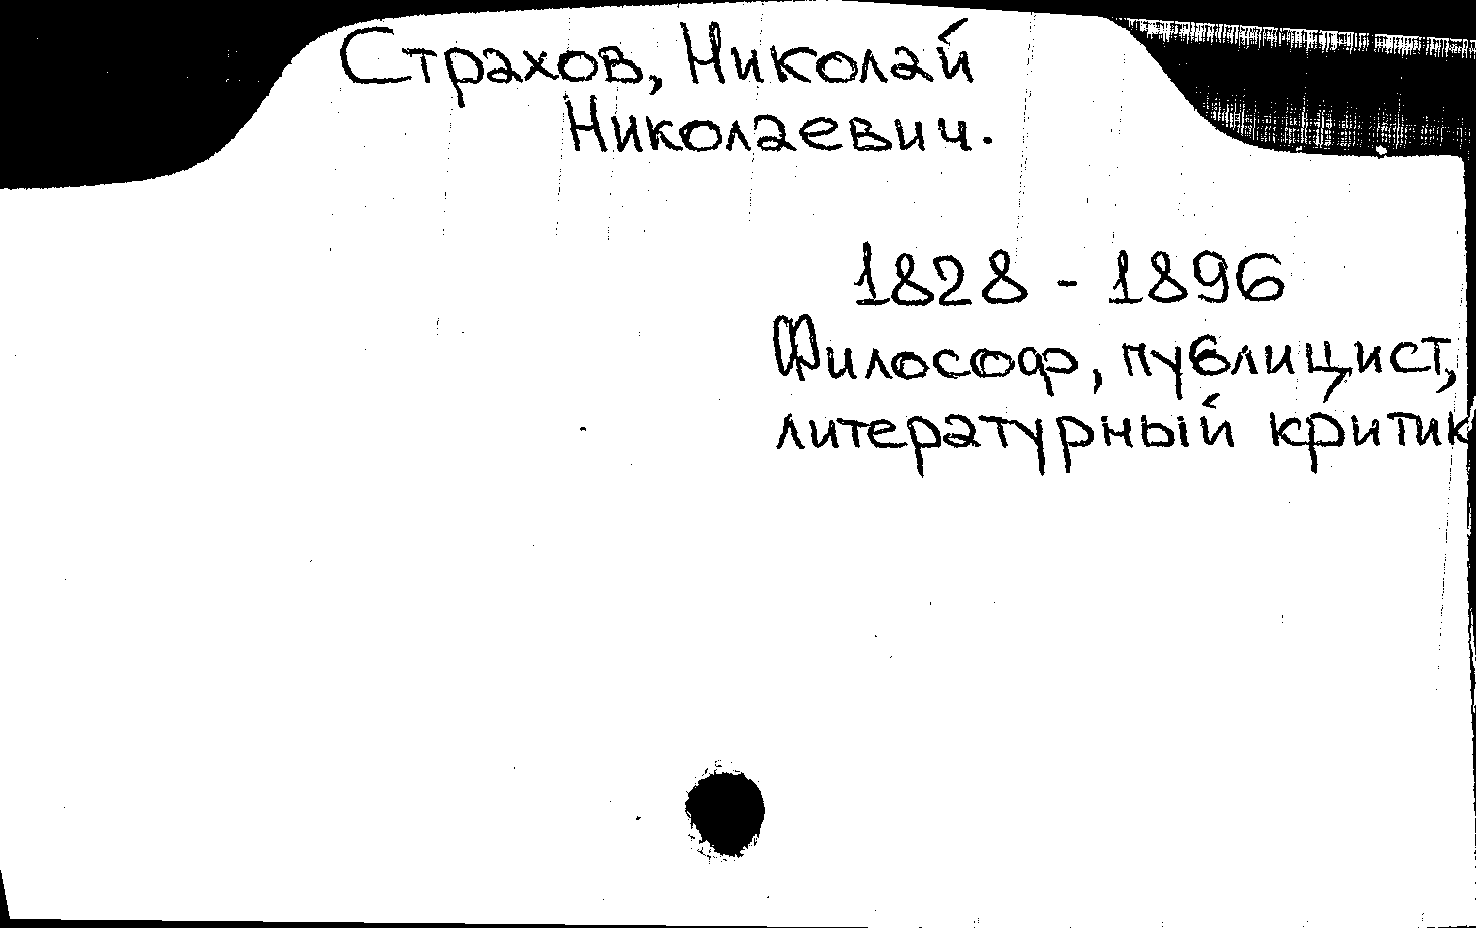 Страхов, Николай
Николаевич.
1828 - 1896
Философ, публицист,
литературный критик